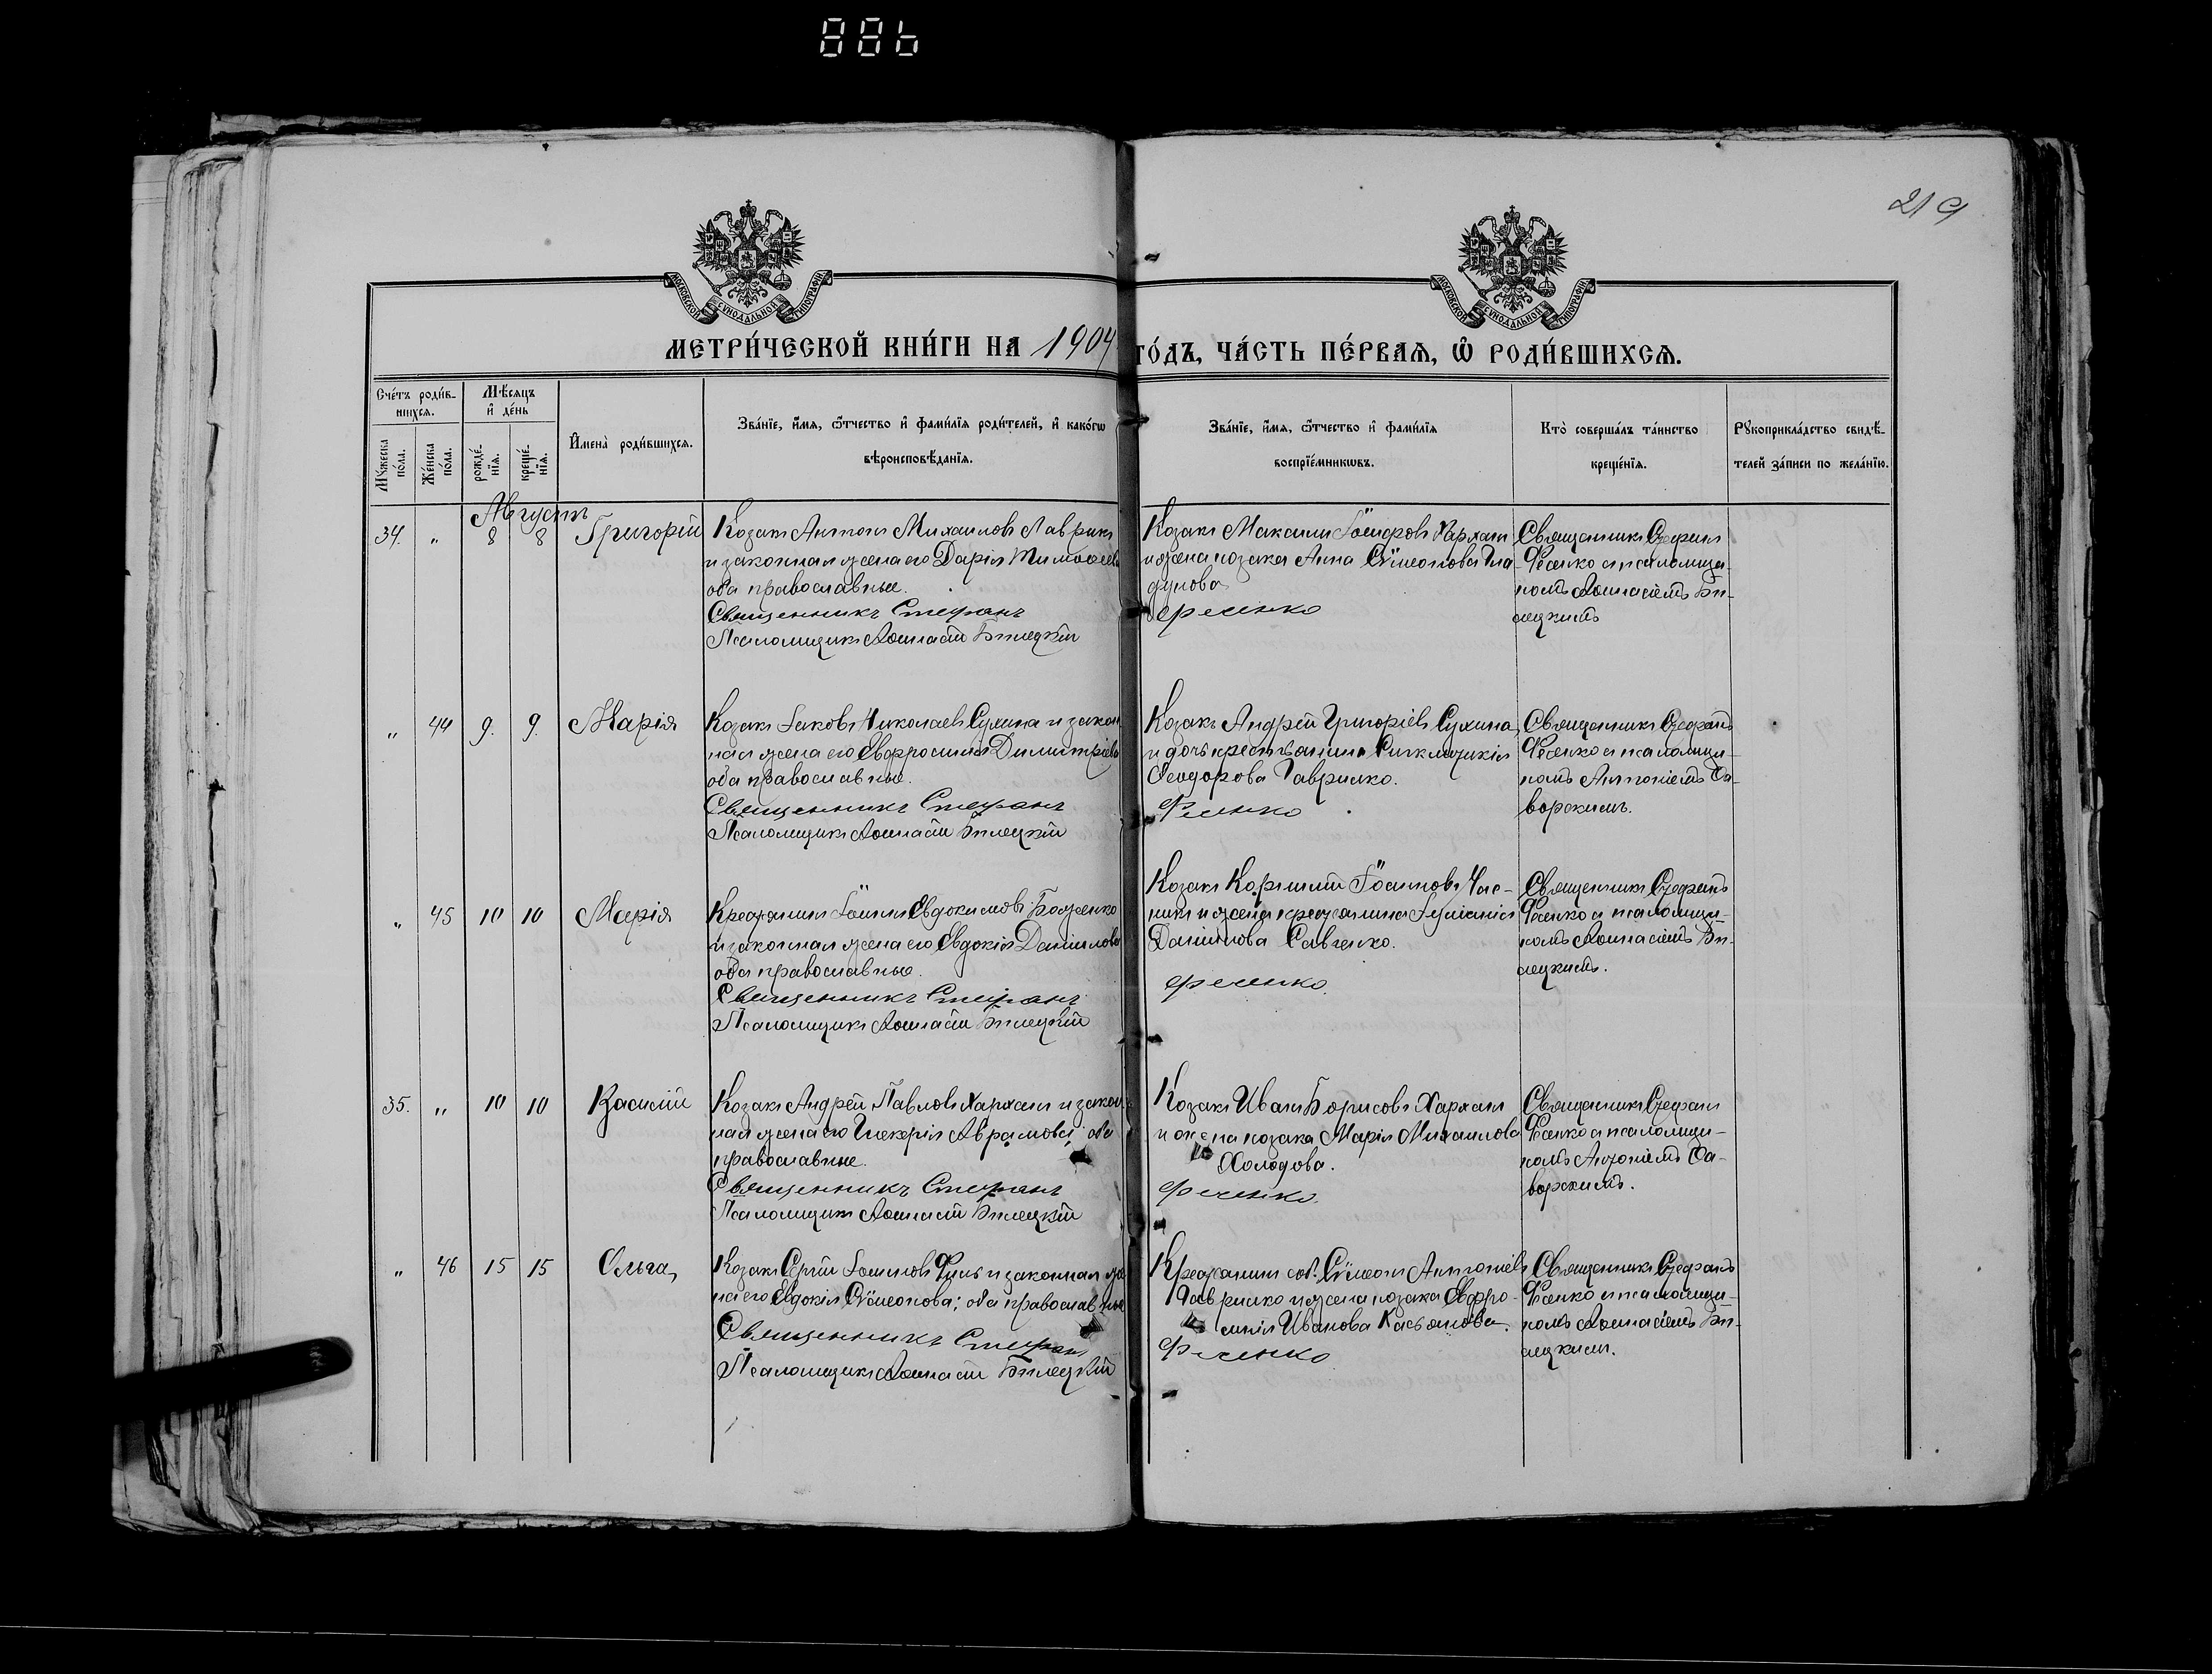 886
219
МОСКОВСКОЙ СУНОДАЛЬНОЙ ТИПОГРАФІИ
МОСКОВСКОЙ СУНОДАЛЬНОЙ ТИПОГРАФІИ
МЕТРИ́ЧЕСКОЙ КНИ́ГИ НА 1904
ГО́ДЪ, ЧА́СТЬ ПЕ́РВАѦ, Ѽ РОДИ́ВШИХСѦ.
Сче́тъ роди́в-
шихсѧ.
Му́жеска по́ла.
Же́нска по́ла.
Мѣ́сяцъ
и҆ де́нь
рожде́-
нїѧ.
креще́-
нїѧ.
И҆мена̀ роди́вшихсѧ.
Зва́нїе, и҆́мѧ, ѻ҆́тчество и҆ фами́лїѧ роди́телей, и҆ како́гѡ
вѣроисповѣ́данїѧ.
Зва́нїе, и҆́мѧ, ѻ҆́тчество и҆ фами́лїѧ
воспрїе́мникѡвъ.
Кто̀ соверша́лъ та́инство
креще́нїѧ.
Рꙋкоприкла́дство свидѣ́-
телей за́писи по жела́нїю.
Августъ
34. " 8 8 Григорій
Козакъ Антонъ Михаиловъ Лаврикъ
и законная жена его Дарія Тимоѳеева
оба православные.
Священникъ Стефанъ
Псаломщикъ Аѳанасій Билецкій
Козакъ Максимъ Харханъ
и жена козака Анна Сѵмеонова
Фесенко
Священникъ Стефанъ
Фесенко и псаломщи-
комъ Аѳанасіемъ Би-
лецкимъ
" 44 9. 9. Марія
Козакъ Іаковъ Николаевъ Сухина и закон
ная жена его Евфросинія Димитріева
оба православные.
Священникъ Стефанъ
Псаломщикъ Аѳанасій Билецкій
Козакъ Андрей Григоріевъ Сухина,
и дочь крестьянина Синклитикія
Ѳеодорова Гаврилко.
Фесенко
Священникъ Стефанъ
Фесенко и псаломщи-
комъ Антоніемъ Яворскимъ.
" 45 10 10 Марія
Крестьянинъ Евдокимовъ Боженко
и законная жена его Евдокія Даніилова
оба православные.
Священникъ Стефанъ
Псаломщикъ Аѳанасій Билецкій
Козакъ Корнилій Час-
никъ и жена крестьянина Іуліанія
Даніилова Савченко.
Фесенко
Священникъ Стефанъ
Фесенко и псаломщи-
комъ Аѳанасіемъ Би-
лецкимъ.
35. " 10 10 Василій
Козакъ Андрей Павловъ Харханъ и закон
ная жена его Гликерія Аврамова; оба
православные.
Священникъ Стефанъ
Псаломщикъ Аѳанасій Билецкій
Козакъ Иванъ Борисовъ Харханъ
и жена козака Марія Михаилова
Холодова.
Фесенко
Священникъ Стефанъ
Фесенко и псаломщи-
комъ Антоніемъ Яворскимъ.
" 46 15 15 Ольга,
Козакъ Сергій и законная же
на его Евдокія Сѵмеонова; оба православные
Священникъ Стефанъ
Псаломщикъ Аѳанасій Билецкій
Крестьянинъ соб. Сѵмеонъ Антоніевъ
Гаврилко и жена козака Евфро-
синія Иванова Касьянова.
Фесенко
Священникъ Стефанъ
Фесенко и псаломщи-
комъ Аѳанасіемъ Би-
лецкимъ.